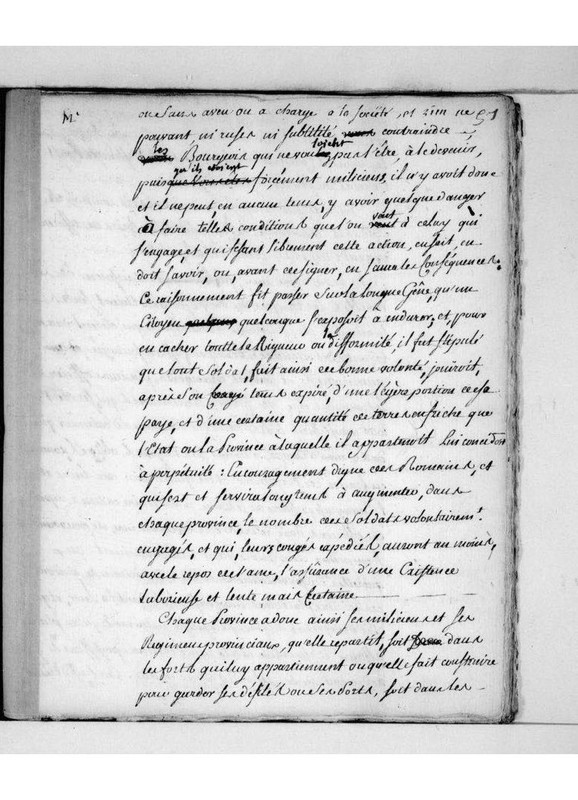 M.r
ou sans aveu ou a charge a la société, et rien ne 91
pouvant ni ruses ni subtilité contraindre
les Bourgeois qui ne veulent pas l'être, à le devenir,
puis qu'ils étoient forcément miliciens, il n'y avoit donc
et il ne peut, en aucun tems, y avoir quelque danger
à faire telles conditions que l'on veut à celuy qui
s'engage, et qui faisant librement cette action, en sait, en
doit savoir, ou, avant de signer, en saura les conséquences.
Ce raisonnement fit passer sur la longue Gêne, qu'un
Citoyen quelconque s'exposoit à endurer, et pour
en cacher toutte la Rigueur ou la difformité, il fut stipulé
que tout soldat, fait ainsi de bonne volonté, jouiroit,
après son tems expiré, d'une légère portion de sa
paye, et d'une certaine quantité de terres en friche que
l'Etat ou la Province à laquelle il appartenoit lui concédoit
à perpétuité : Encouragement digne des Romains, et
qui sert et servira longtems à augmenter, dans
chaque province, le nombre des soldats volontairem.t
engagés, et qui, leurs congés expédiés, auront au moins,
avec le repos de l'ame, l'assûrance d'une Existence
laborieuse et lente, mais Certaine
Chaque Province a donc ainsi ses miliciens et ses
Regimens provinciaux, qu'elle repartit, soit dans
les forts qui luy appartiennent ou qu'elle fait construire
pour garder ses défilés ou ses Ports, soit dans les